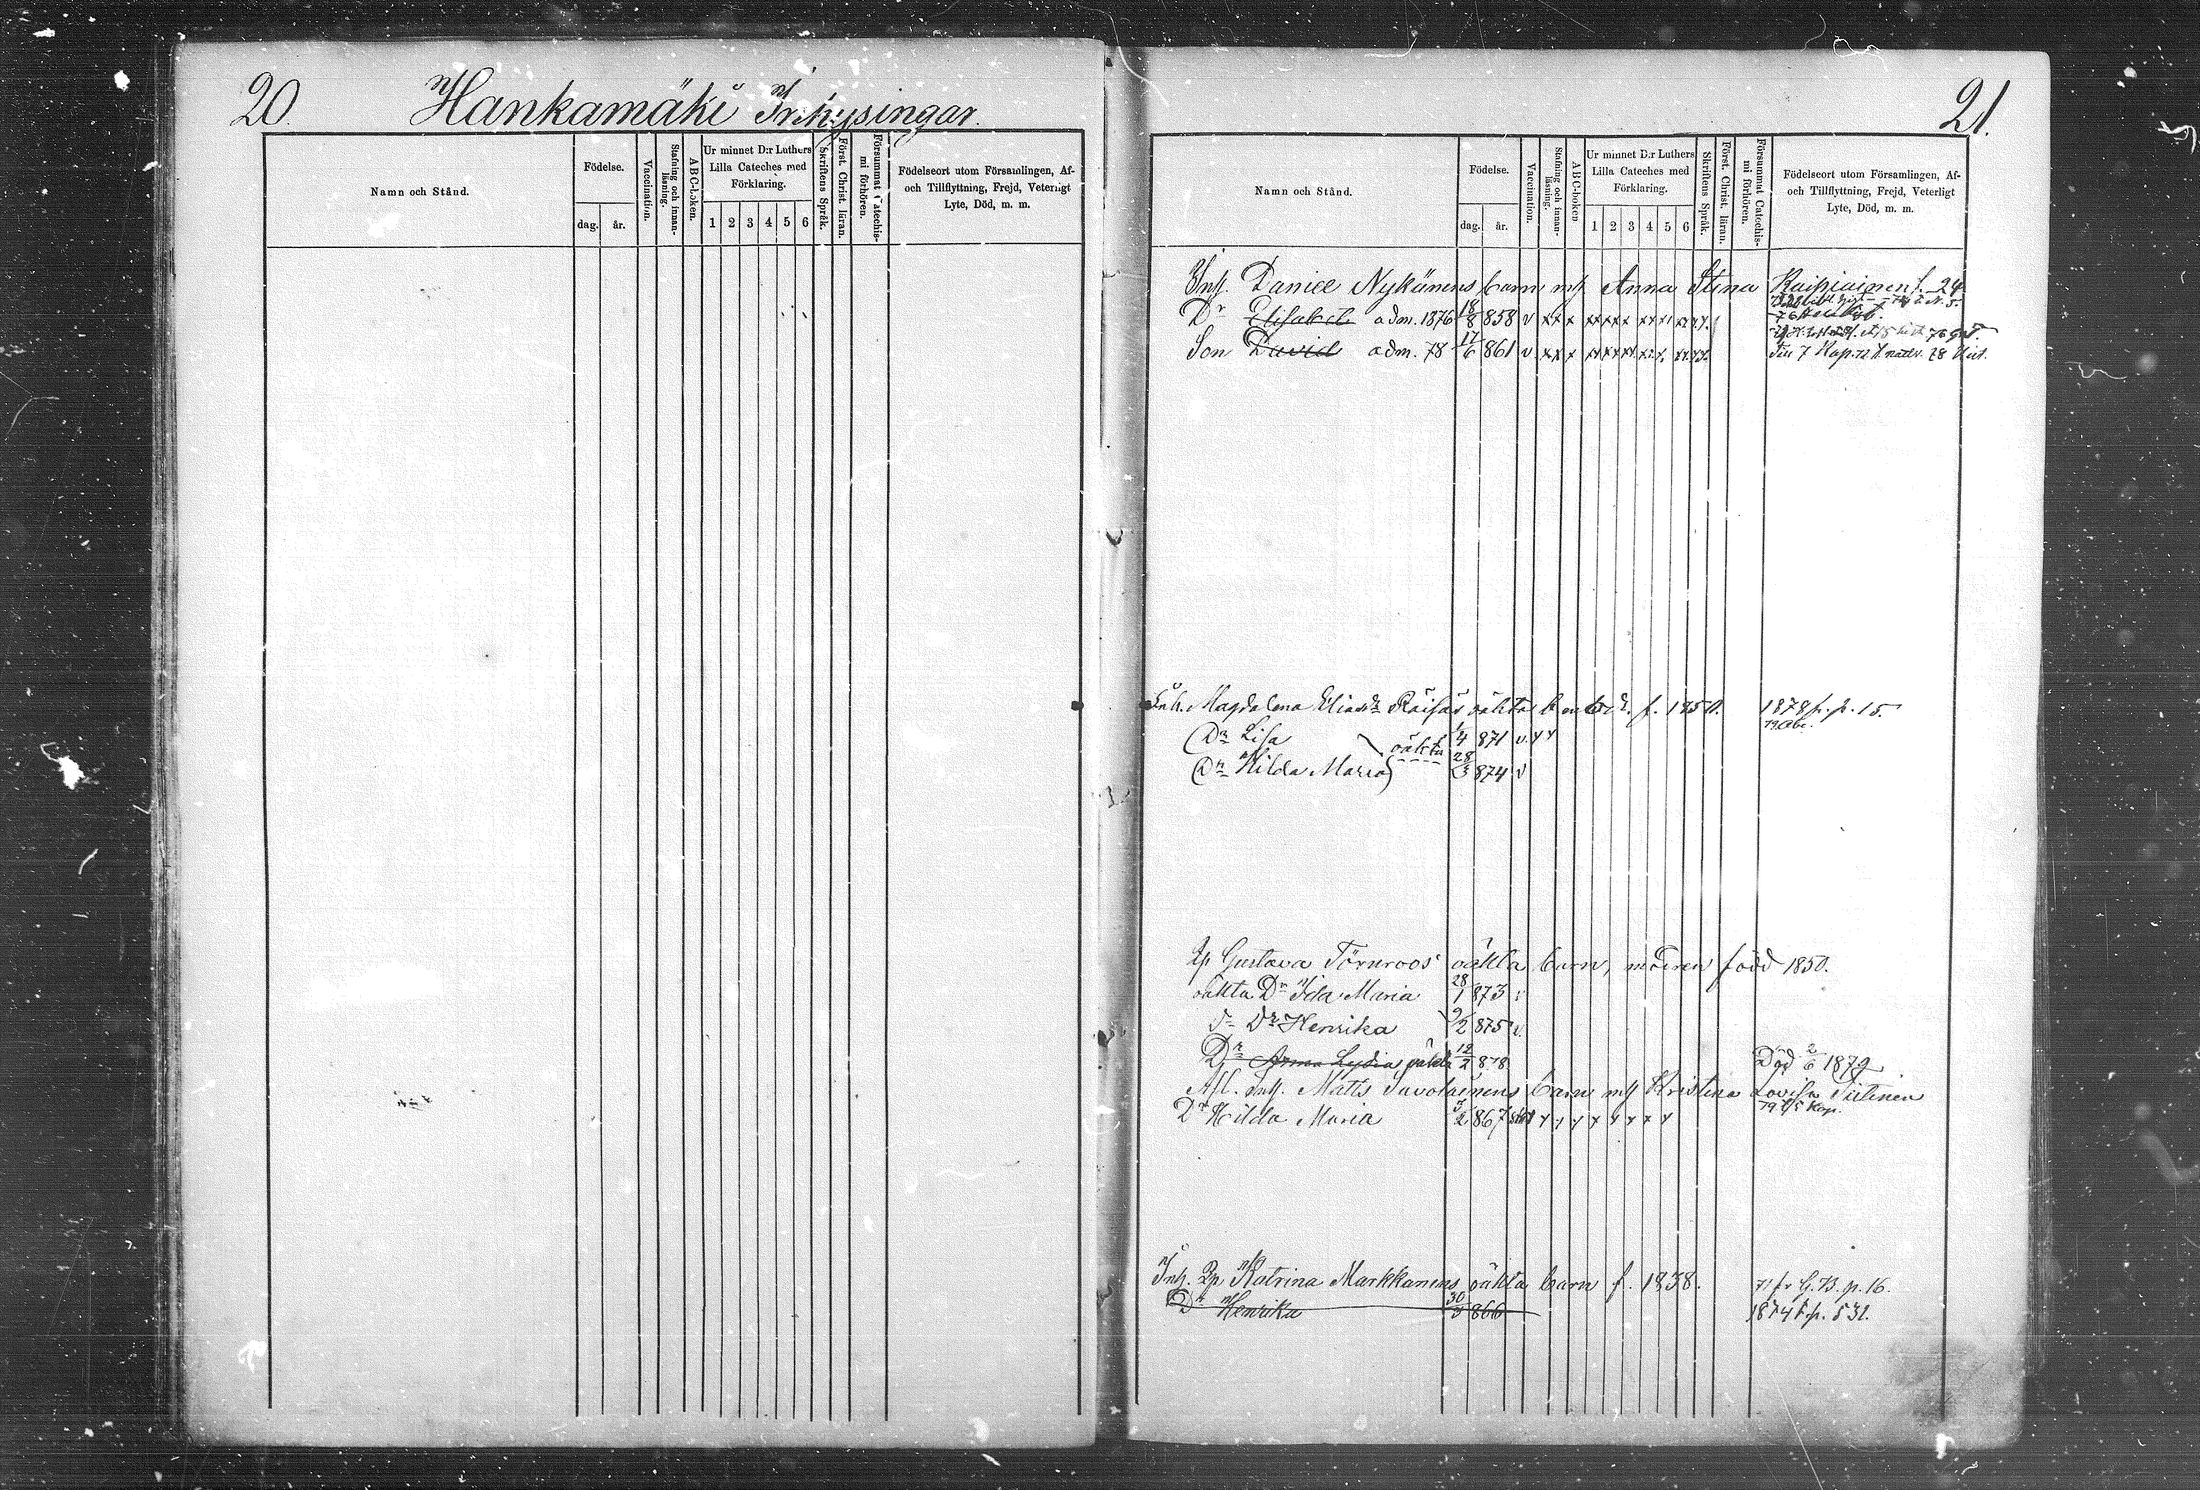 20. Hankamäki Inhysingar.
Namn och Stånd.
Födelse.
dag. år.
Vaccination.
Stafning och innan-
läsning.
ABC-boken.
Ur minnet D:r Luthers
Lilla Cateches med
Förklaring.
1 2 3 4 5 6
Skriftens Språk.
Först. Christ. läran.
Försummat Catechis-
mi förhören.
Födelseort utom Församlingen, Af-
och Tillflyttning, Frejd, Veterligt
Lyte, Död, m. m.
21.
Namn och Stånd.
Födelse.
dag. år.
Vaccination.
Stafning och innan-
läsning.
ABC-boken
Ur minnet D:r Luthers
Lilla Cateches med
Förklaring.
1 2 3 4 5 6
Skriftens Språk.
Först. Christ. läran.
Försummat Catechis-
mi förhören.
Födelseort utom Församlingen, Af-
och Tillflyttning, Frejd, Veterligt
Lyte, Död, m. m.
Inh. Daniel Nykänens barn mf Anna Stina Raipiainen f. 24
Dr Elisabet adm. 1876 18/8 858 v x x x x x x x x x x x x
Son David adm. 78 17/6 861 v x x x x x x x x x x x x
Inh. Magdalena Eliasdr Räisäs oäkta f. 1850. 1878 fr. p. 15.
Dr Lisa 1/4 871 v. x x
oäkta
Dr Hilda Maria 28/3 874 v
Pp Gustava Törnroos' oäkta barn, modren född 1850.
oäkta Dr Ida Maria 28/1 873 v
Dr Henrika 9/2 875 v.
Dr Anna Lydia oäkta 12/2 878 Död 2/6 1879
Afl. Inh. Matts Savolainens barn mf Kristina Lovisa Tiitinen
Dr Hilda Maria 3/2 867 x x x x x x x x
Inh. Pp Katrina Markkanens oäkta barn f. 1838. 71 fr G.B. p. 16.
Dr Henrika 30/3 866 1874 t. p. 532.